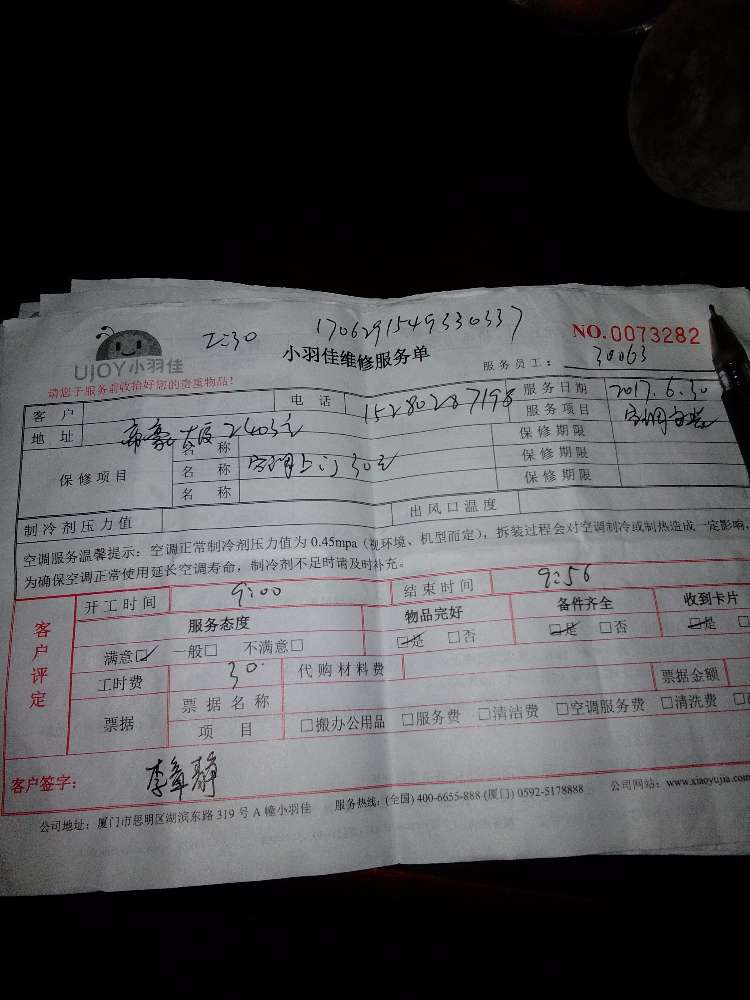 1706291549330337
UJOY小羽佳
小羽佳维修服务单
NO.0073282
请您于服务前收拾好您的贵重物品!
服务员工: 30063
客户 电话 15280287198 服务日期 2017.6.30
地址 2403 服务项目 空调安装
保修项目 名称 保修期限
名称 空调上门30元 保修期限
名称 保修期限
制冷剂压力值 出风口温度
空调服务温馨提示:空调正常制冷剂压力值为 0.45mpa(视环境、机型而定),拆装过程会对空调制冷或制热造成一定影响,
为确保空调正常使用延长空调寿命,制冷剂不足时请及时补充。
客户评定
开工时间 9:00 结束时间 9:56
服务态度 物品完好 备件齐全 收到卡片
满意☑ 一般□ 不满意□ ☑是 □否 ☑是 □否 ☑是 □
工时费 30. 代购材料费
票据 票据名称 票据金额
项目 □搬办公用品 □服务费 □清洁费 □空调服务费 □清洗费
客户签字:
公司地址:厦门市思明区湖滨东路 319 号 A 幢小羽佳 服务热线:(全国) 400-6655-888 (厦门) 0592-5178888 公司网站:www.xiaoyujia.com